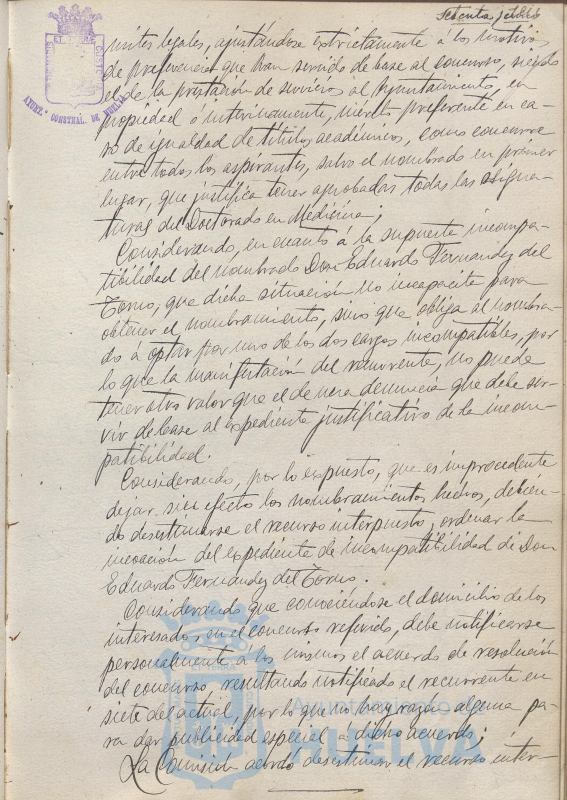 Setenta y
AYUNT.º CONSTNAL. DE HUELVA
mites legales, ajustándose estrictamente á los motivos
de preferencia que han servido de base al concurso, siendo
el de la prestación de servicios al Ayuntamiento, en
propiedad ó interinamente, mérito preferente en ca-
so de igualdad de títulos académicos, como concurre
entre todos los aspirantes, salvo el nombrado en primer
lugar, que justifica tener aprobadas todas las asigna-
turas del Doctorado en Medicina;
Considerando, en cuanto á la supuesta incompa-
tibilidad del nombrado Don Eduardo Fernandez del
Torno, que dicha situación no incapacita para
obtener el nombramiento, sino que obliga al nombra-
do á optar por uno de los dos cargos incompatibles, por
lo que la manifestación del recurrente, no puede
tener otro valor que el de mera denuncia que debe ser-
vir de base al expediente justificativo de la incom-
patibilidad.
Considerando, por lo expuesto, que es improcedente
dejar sin efecto los nombramientos hechos, debien-
do desestimarse el recurso interpuesto, ordenar la
incoación del expediente de incompatibilidad de Don
Eduardo Fernandez del Torno.
Considerando que conociéndose el domicilio de los
interesados en el concurso referido, debe notificarse
personalmente á los mismos el acuerdo de resolución
del concurso, resultando notificado el recurrente en
siete del actual, por lo que no hay razón alguna pa-
ra dar publicidad especial á dicho acuerdo;
La Comisión acordó desestimar el recurso inter-
Ayuntamiento de
HUELVA